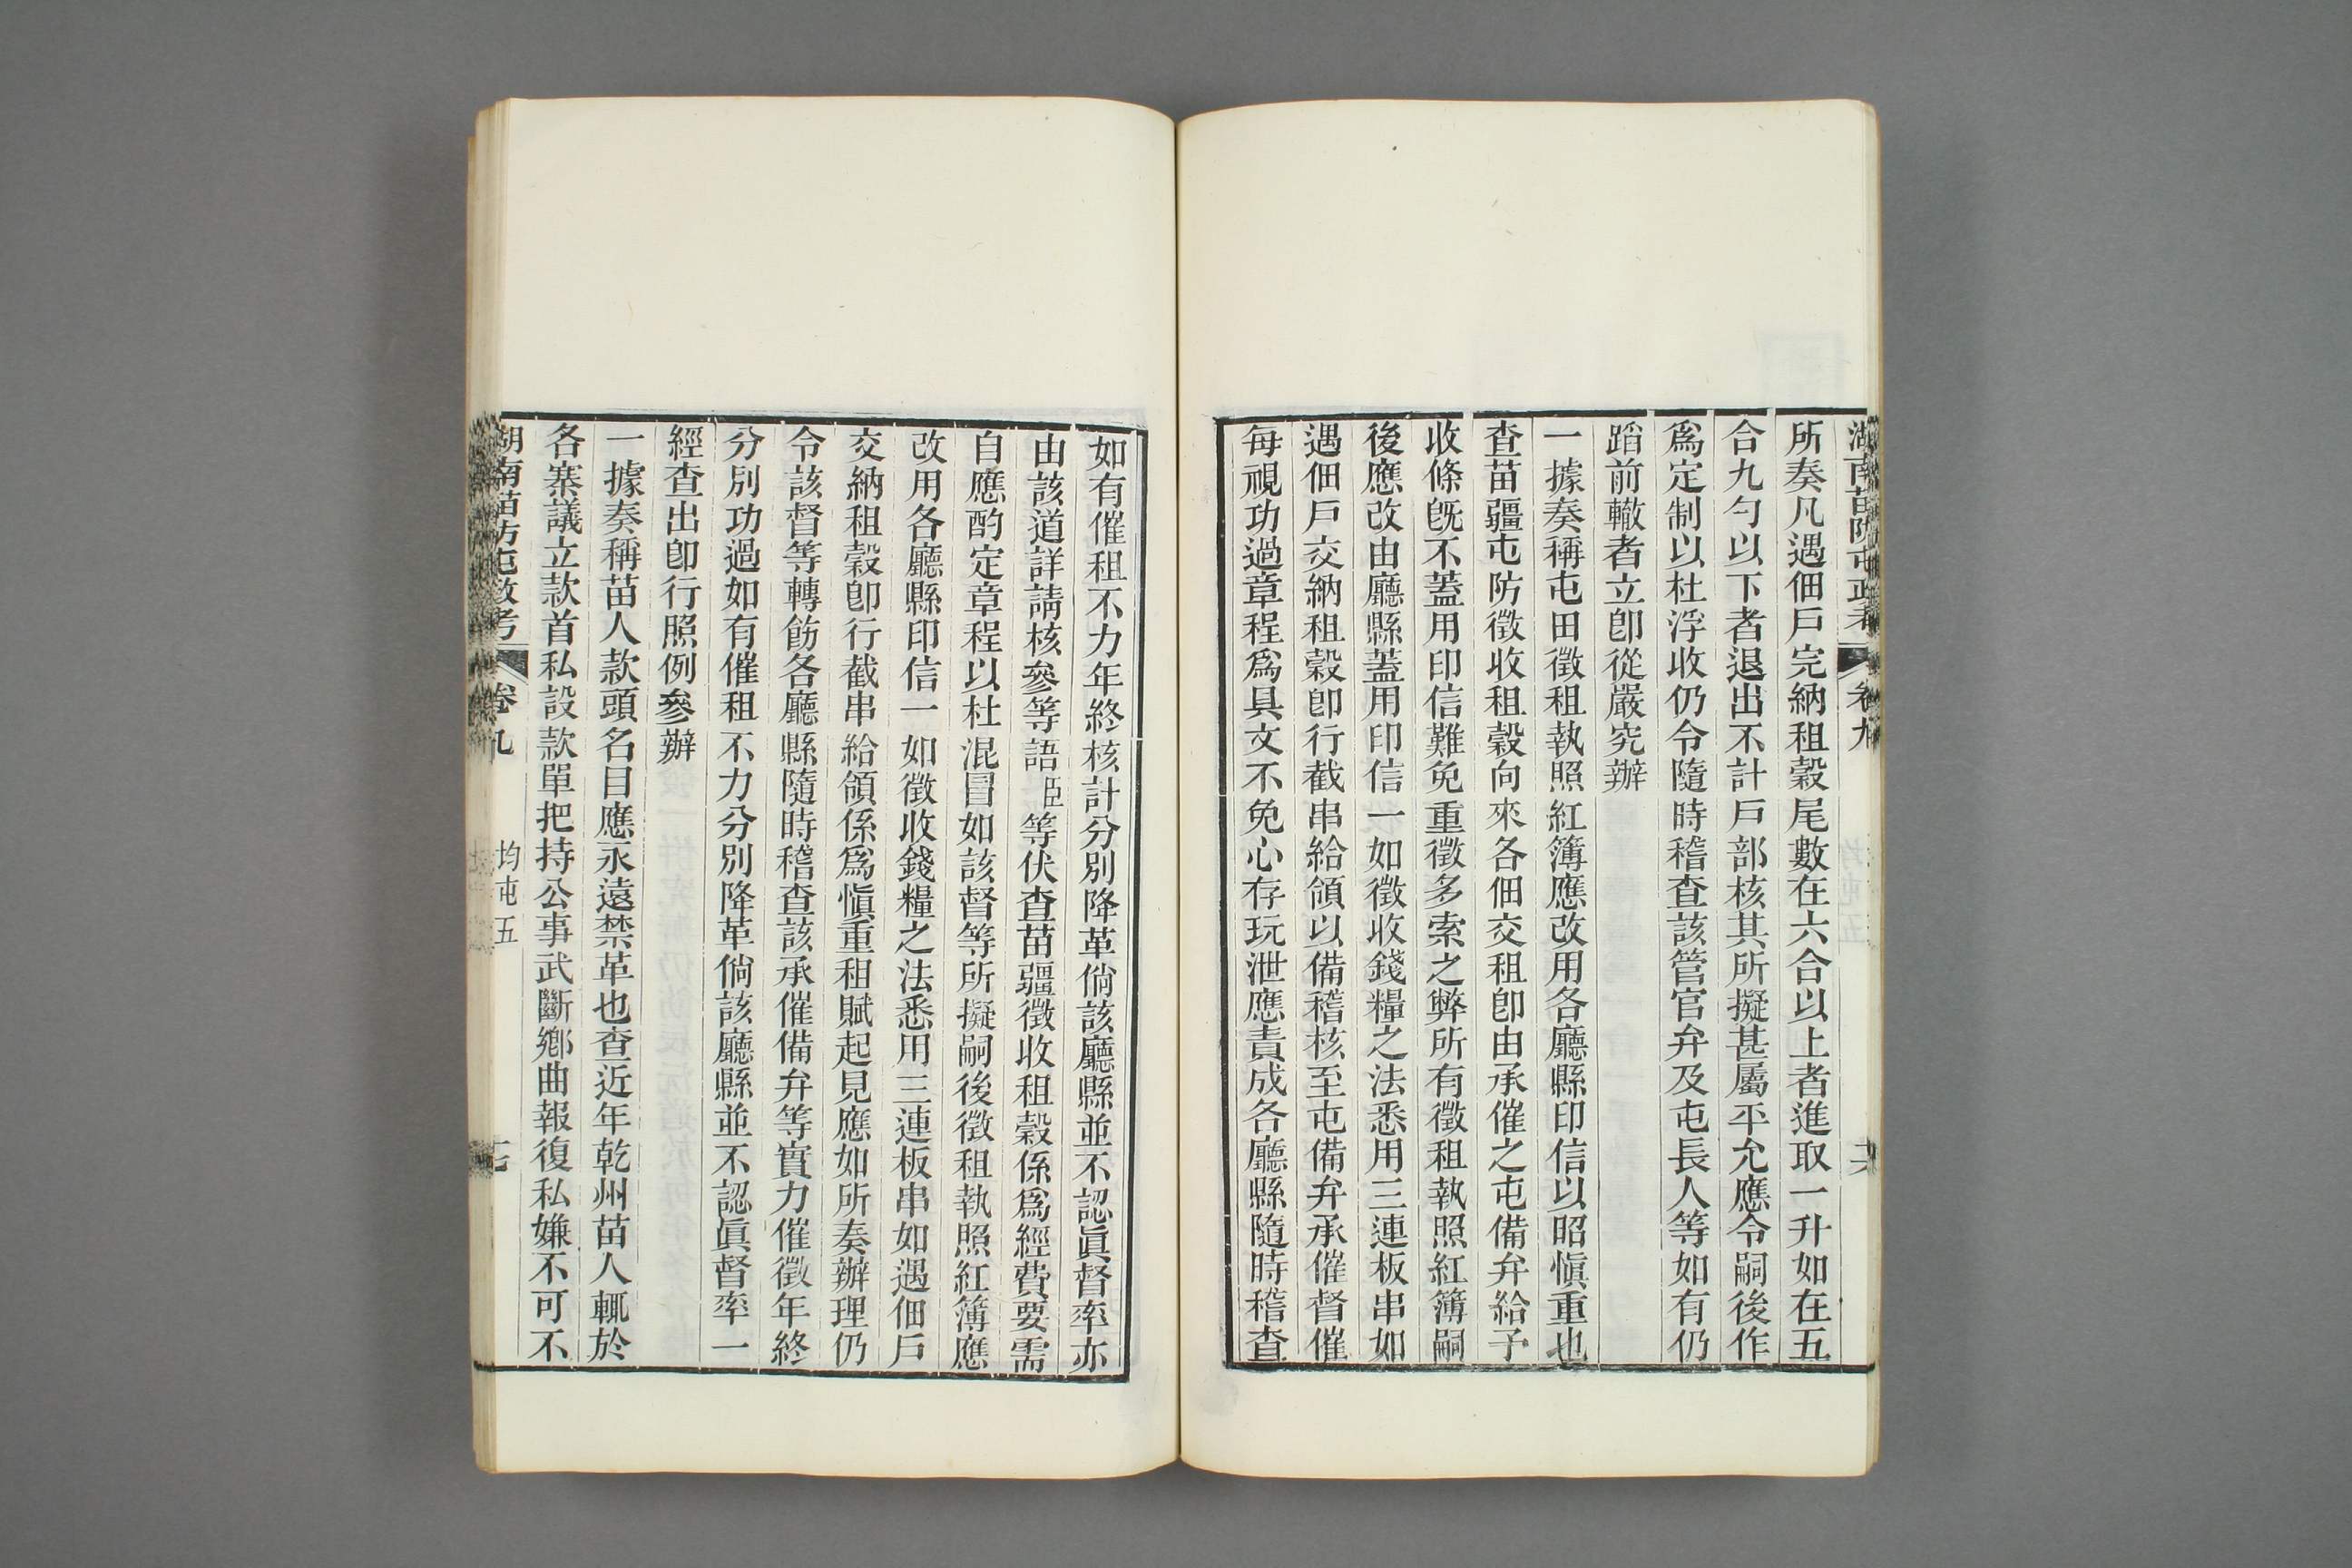 湖南苗防屯政考 卷九
所奏凡遇佃戶完納租穀尾數在六合以上者進取一升如在五
合九勺以下者退出不計戶部核其所擬甚屬平允應令嗣後作
爲定制以杜浮收仍令隨時稽查該管官弁及屯長人等如有仍
蹈前轍者立卽從嚴究辦
一據奏稱屯田徵租執照紅簿應改用各廳縣印信以昭愼重也
查苗疆屯防徵收租穀向來各佃交租卽由承催之屯備弁給予
收條旣不蓋用印信難免重徵多索之弊所有徵租執照紅簿嗣
後應改由廳縣蓋用印信一如徵收錢糧之法悉用三連板串如
遇佃戶交納租穀卽行截串給領以備稽核至屯備弁承催督催
每視功過章程爲具文不免心存玩泄應責成各廳縣隨時稽查
如有催租不力年終核計分別降革倘該廳縣並不認眞督率亦
由該道詳請核參等語臣等伏查苗疆徵收租穀係爲經費要需
自應酌定章程以杜混冒如該督等所擬嗣後徵租執照紅簿應
改用各廳縣印信一如徵收錢糧之法悉用三連板串如遇佃戶
交納租穀卽行截串給領係爲愼重租賦起見應如所奏辦理仍
令該督等轉飭各廳縣隨時稽查該承催備弁等實力催徵年終
分別功過如有催租不力分別降革倘該廳縣並不認眞督率一
經查出卽行照例參辦
一據奏稱苗人款頭名目應永遠禁革也查近年乾州苗人輒於
各寨議立款首私設款單把持公事武斷鄉曲報復私嫌不可不
湖南苗防屯政考 卷九 均屯五